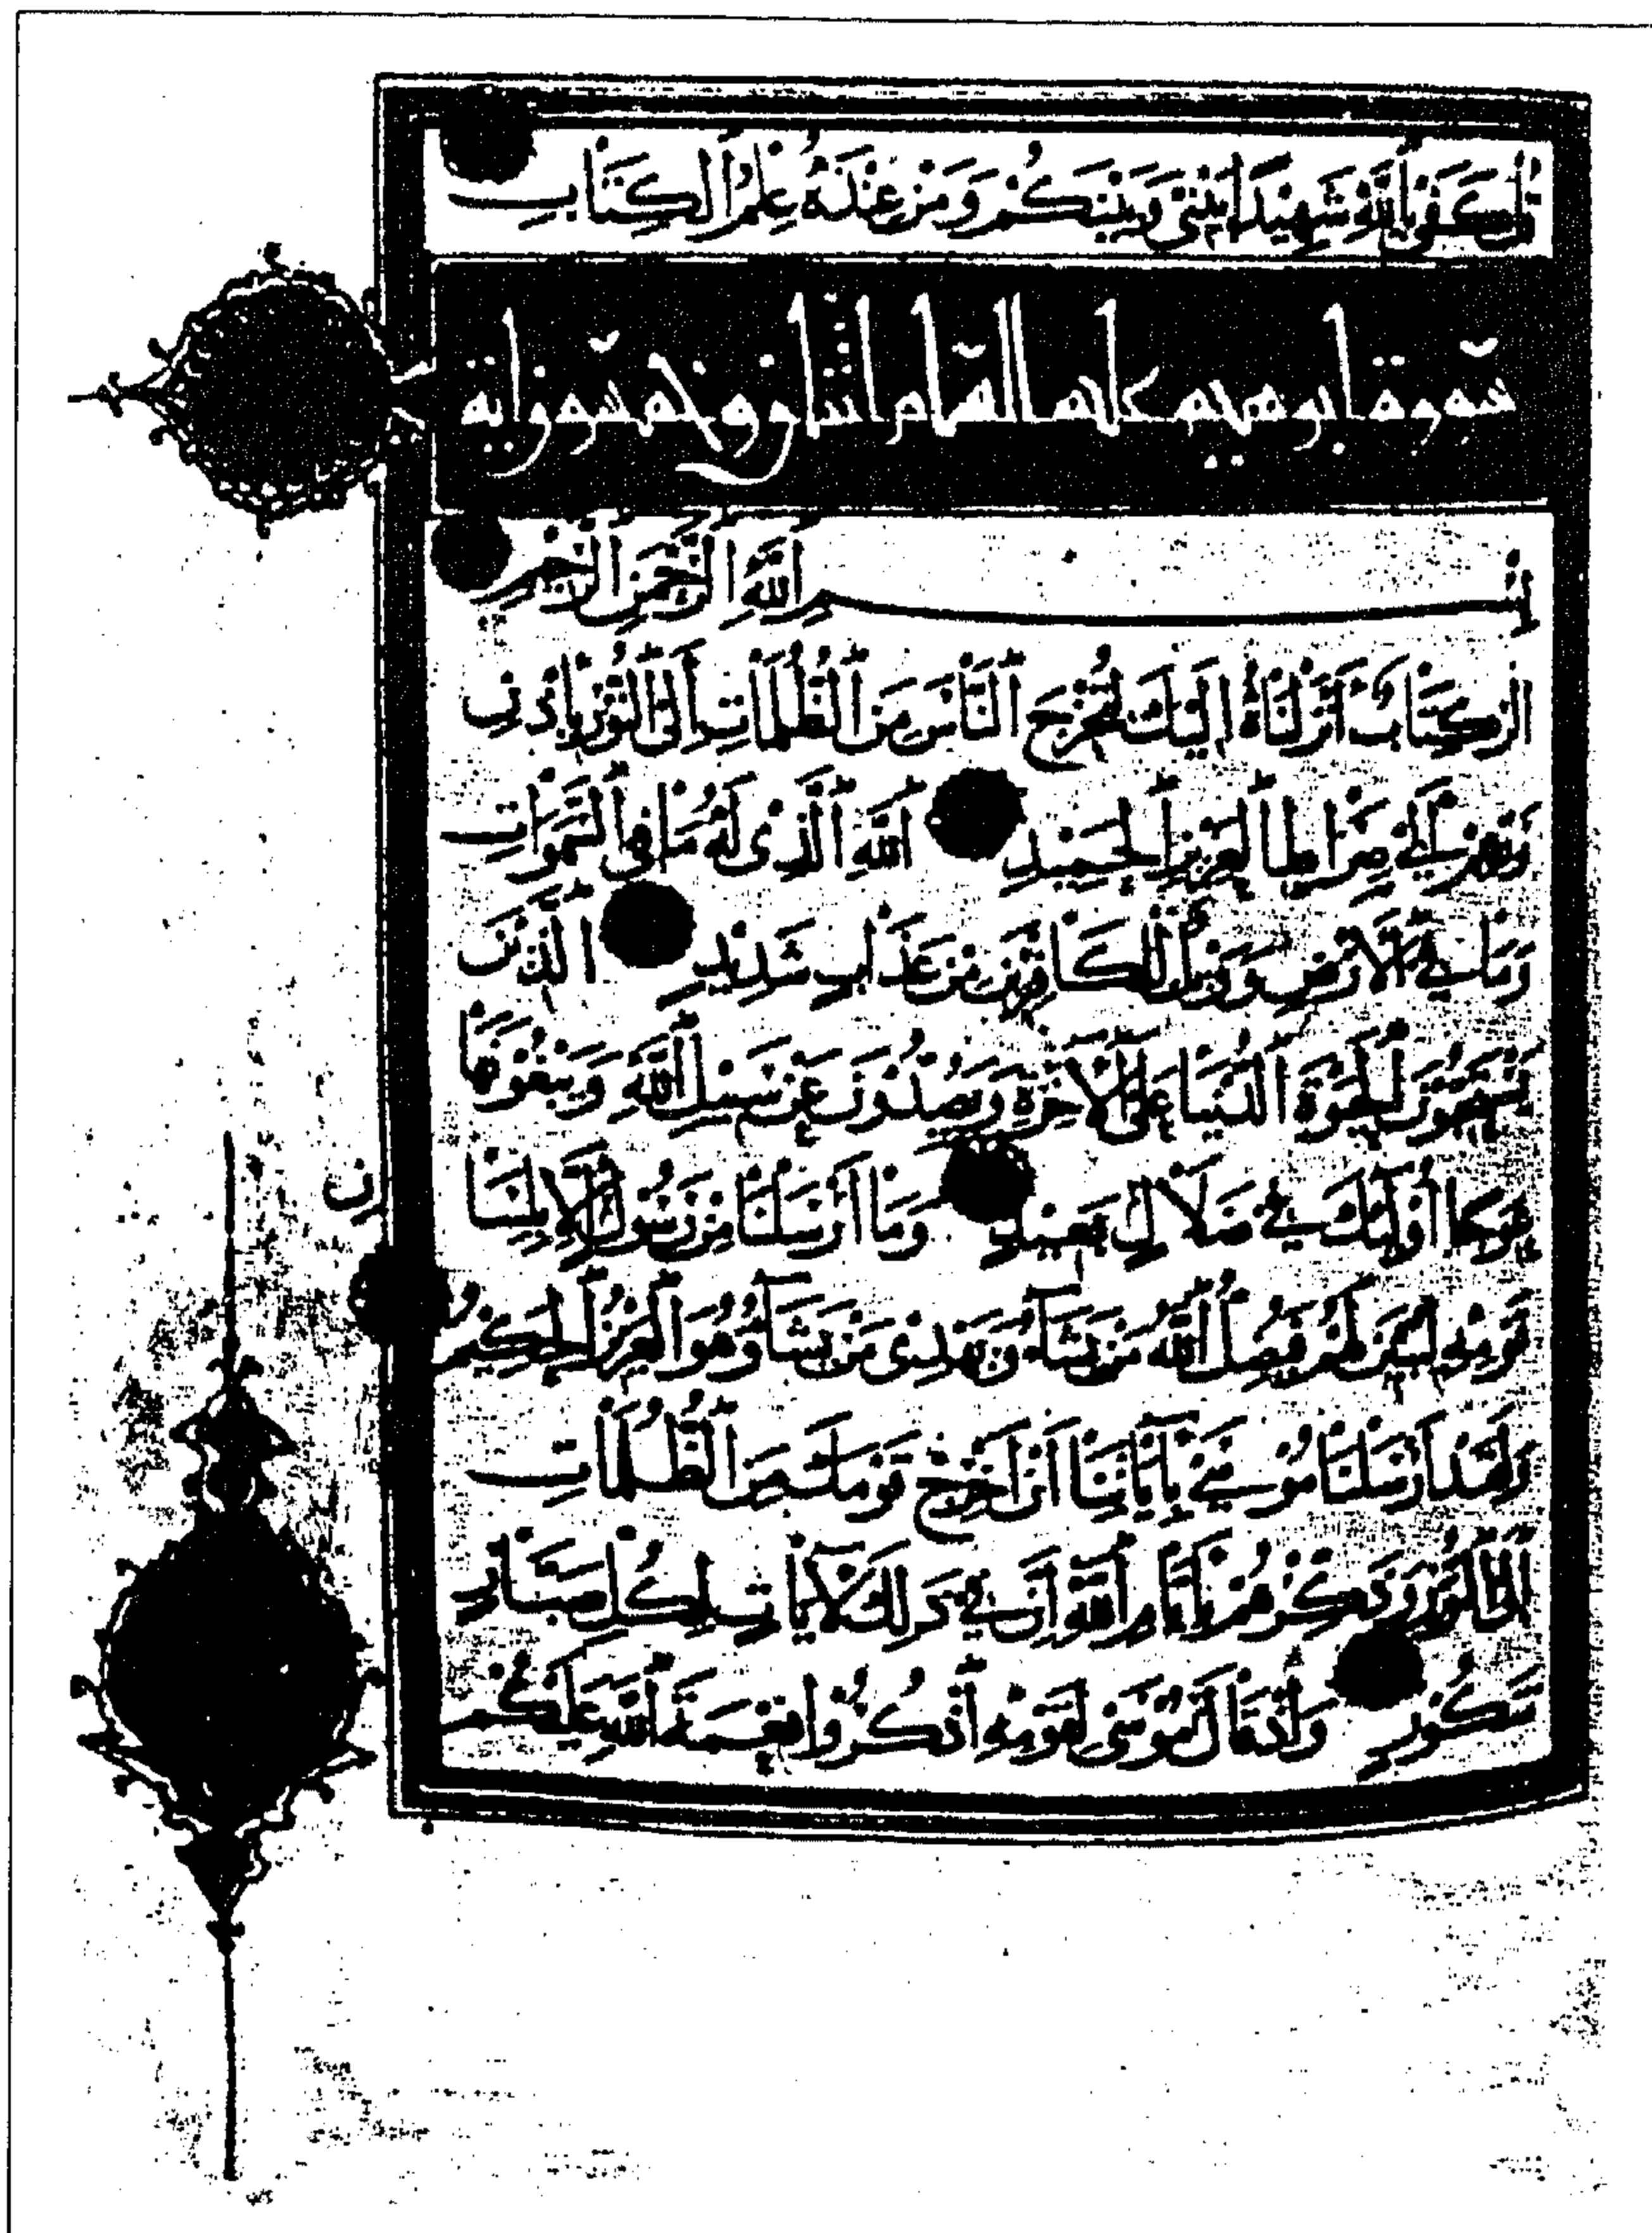 قُلْ كَفَىٰ بِاللَّهِ شَهِيدًا بَيْنِي وَبَيْنَكُمْ وَمَنْ عِنْدَهُ عِلْمُ الْكِتَابِ
سورة ابرهيم عليه السلام اثنان وخمسون اية
بِسْمِ اللَّهِ الرَّحْمَنِ الرَّحِيمِ
الر كِتَابٌ أَنْزَلْنَاهُ إِلَيْكَ لِتُخْرِجَ النَّاسَ مِنَ الظُّلُمَاتِ إِلَى النُّورِ بِإِذْنِ
رَبِّهِمْ إِلَى صِرَاطِ الْعَزِيزِ الْحَمِيدِ اللَّهِ الَّذِي لَهُ مَا فِي السَّمَوَاتِ
وَمَا فِي الْأَرْضِ وَوَيْلٌ لِلْكَافِرِينَ مِنْ عَذَابٍ شَدِيدٍ الَّذِينَ
يَسْتَحِبُّونَ الْحَيَوةَ الدُّنْيَا عَلَى الْآخِرَةِ وَيَصُدُّونَ عَنْ سَبِيلِ اللَّهِ وَيَبْغُونَهَا
عِوَجًا أُولَئِكَ فِي ضَلَالٍ بَعِيدٍ وَمَا أَرْسَلْنَا مِنْ رَسُولٍ إِلَّا بِلِسَانِ
قَوْمِهِ لِيُبَيِّنَ لَهُمْ فَيُضِلُّ اللَّهُ مَنْ يَشَاءُ وَيَهْدِي مَنْ يَشَاءُ وَهُوَ الْعَزِيزُ الْحَكِيمُ
وَلَقَدْ أَرْسَلْنَا مُوسَى بِآيَاتِنَا أَنْ أَخْرِجْ قَوْمَكَ مِنَ الظُّلُمَاتِ
إِلَى النُّورِ وَذَكِّرْهُمْ بِأَيَّامِ اللَّهِ إِنَّ فِي ذَلِكَ لَآيَاتٍ لِكُلِّ صَبَّارٍ
شَكُورٍ وَإِذْ قَالَ مُوسَى لِقَوْمِهِ اذْكُرُوا نِعْمَةَ اللَّهِ عَلَيْكُمْ